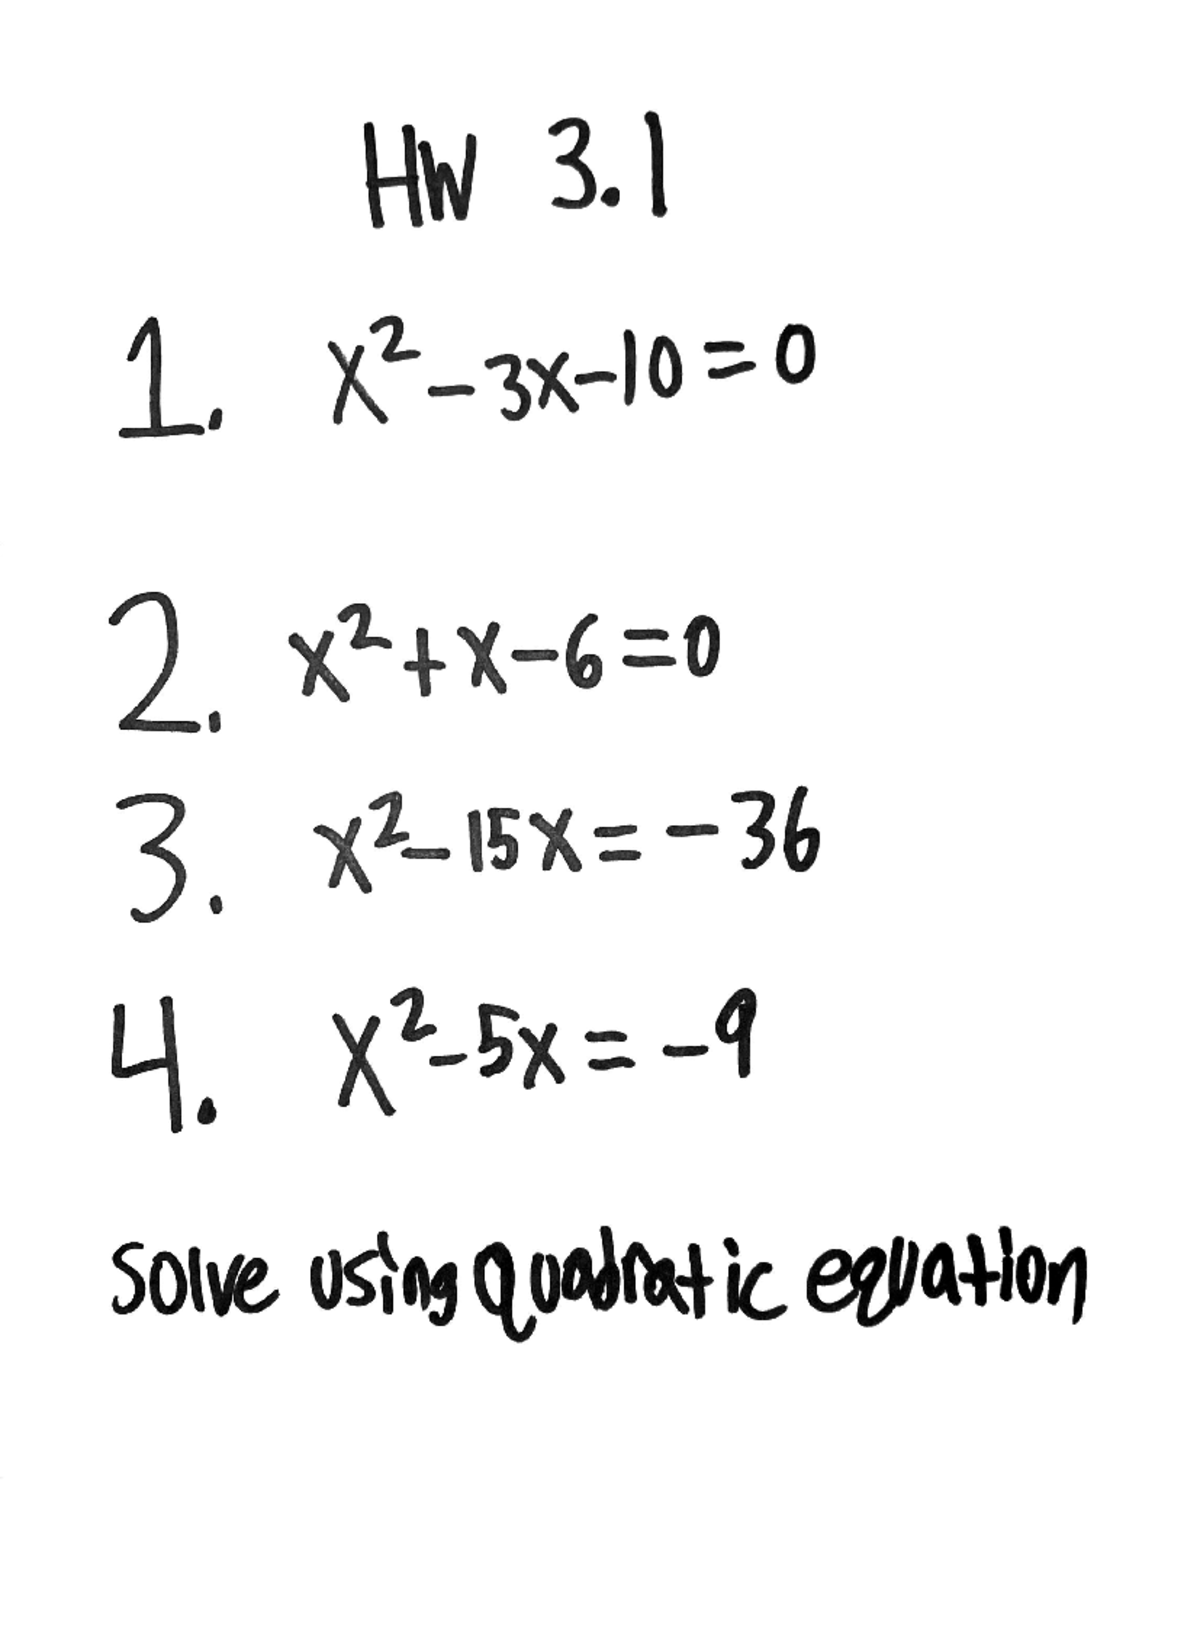 HW 3.1
1. x²-3x-10=0
2. x²+x-6=0
3. x²-15x=-36
4. x²-5x=-9
Solve using quadratic equation